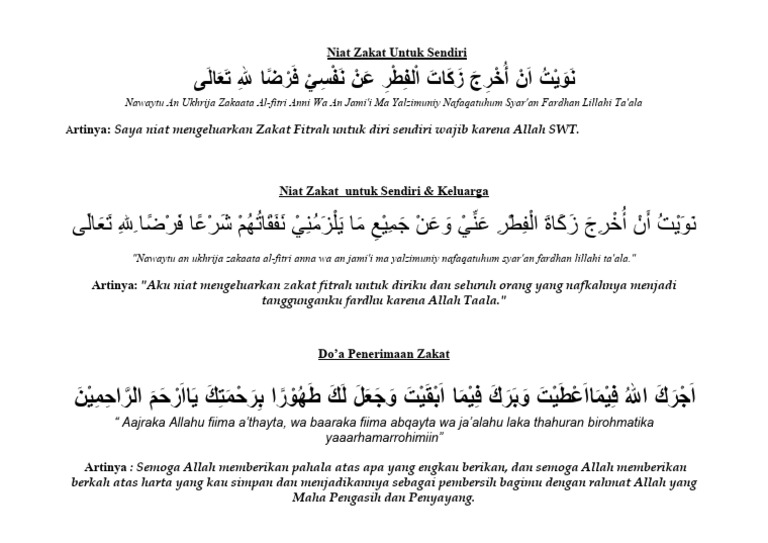 Niat Zakat Untuk Sendiri
نَوَيْتُ اَنْ اُخْرِجَ زَكَاتَ الْفِطْرِ عَنْ نَفْسِيْ فَرْضًا ِللهِ تَعَالَى
Nawaytu An Ukhrija Zakaata Al-fitri Anni Wa An Jami'i Ma Yalzimuniy Nafaqatuhum Syar'an Fardhan Lillahi Ta'ala
Artinya: Saya niat mengeluarkan Zakat Fitrah untuk diri sendiri wajib karena Allah SWT.
Niat Zakat untuk Sendiri & Keluarga
نوَيْتُ أَنْ أُخْرِجَ زَكَاةَ الْفِطْرِ عَنِّيْ وَعَنْ جَمِيْعِ مَا يَلْزَمُنِيْ نَفَقَاتُهُمْ شَرْعًا فَرْضًا ِللهِ تَعَالَى
"Nawaytu an ukhrija zakaata al-fitri anna wa an jami'i ma yalzimuniy nafaqatuhum syar'an fardhan lillahi ta'ala."
Artinya: "Aku niat mengeluarkan zakat fitrah untuk diriku dan seluruh orang yang nafkahnya menjadi
tanggunganku fardhu karena Allah Taala."
Do'a Penerimaan Zakat
اَجْرَكَ اللهُ فِيْمَااَعْطَيْتَ وَبَرَكَ فِيْمَا اَبْقَيْتَ وَجَعَلَ لَكَ طَهُوْرًا بِرَحْمَتِكَ يَااَرْحَمَ الرَّاحِمِيْنَ
“ Aajraka Allahu fiima a’thayta, wa baaraka fiima abqayta wa ja’alahu laka thahuran birohmatika
yaaarhamarrohimiin”
Artinya : Semoga Allah memberikan pahala atas apa yang engkau berikan, dan semoga Allah memberikan
berkah atas harta yang kau simpan dan menjadikannya sebagai pembersih bagimu dengan rahmat Allah yang
Maha Pengasih dan Penyayang.